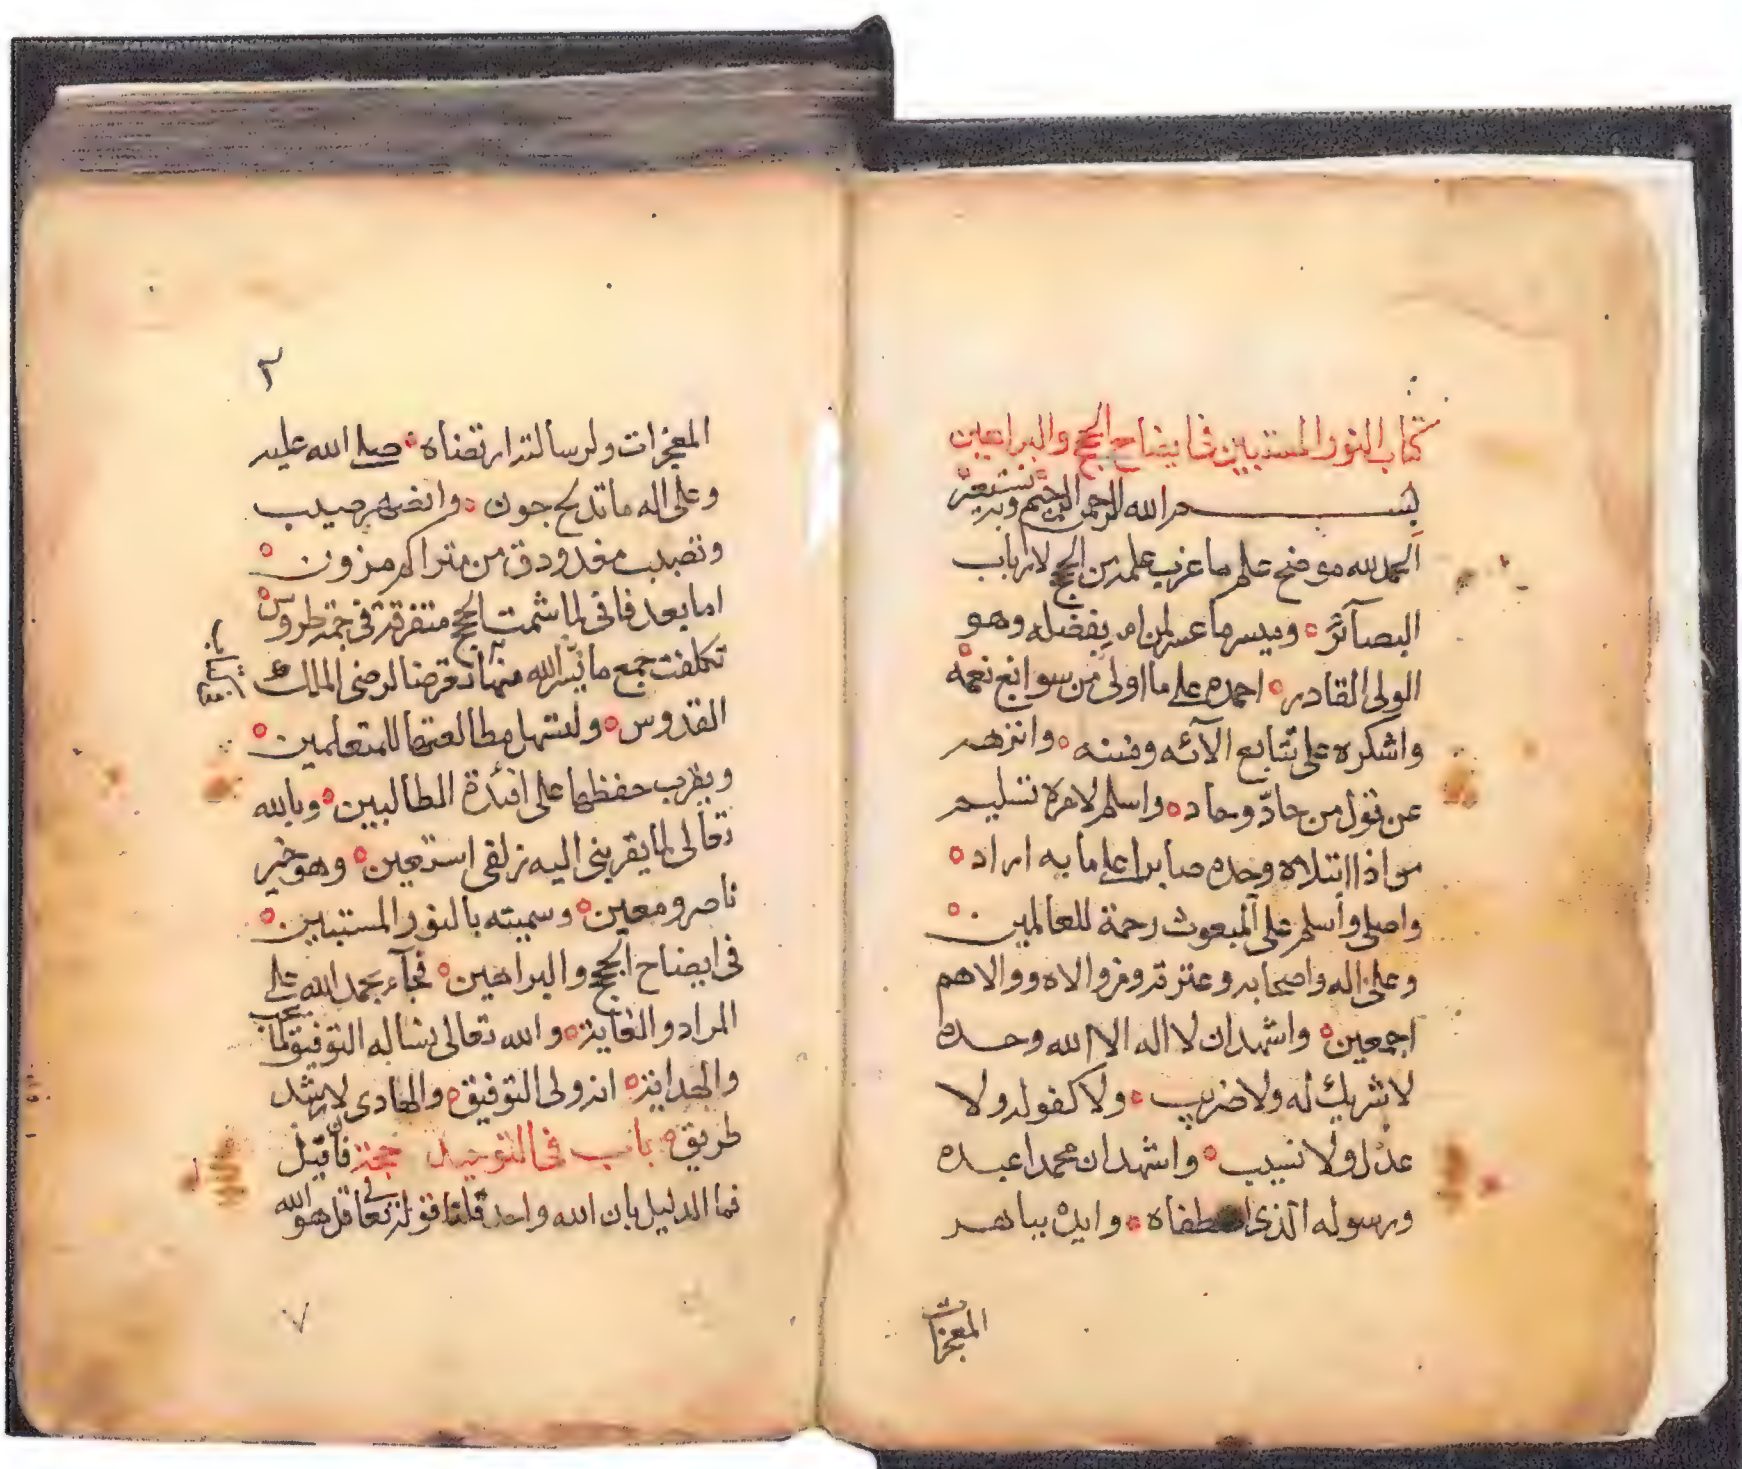 كتاب النور المستبين في ايضاح الحجج والبراهين
بسم الله الرحمن الرحيم وبه نستعين
الحمد لله موضح علم ما عزب علمه من الحجج لارباب
البصآئر وميسر ما عسر لمن ام بفضله وهو
الولي القادر احمده على ما اولى من سوابغ نعمه
واشكره على تتابع الآئه ومننه وانزهه
عن قول من حادّ وحاد واسلم لامره تسليم
من اذا ابتلاه وجده صابرا على ما به اراد
واصلي وأسلم على المبعوث رحمة للعالمين
وعلى اله واصحابه وعترته ومن والاه ووالاهم
اجمعين واشهد ان لا اله الا الله وحده
لا شريك له ولا ضريب ولا كفو له ولا
عدل ولا نسيب واشهد ان محمدا عبده
ورسوله الذي اصطفاه وايده بباهر
المعجزات
٢
المعجزات ولرسالته ارتضاه صلى الله عليه
وعلى اله ما تدلح جون وانضهر صيب
وتصبب مغدودق من متراكم مزون
اما بعد فاني لما شمت الحجج متفرقة في جمة طروس
تكلفت جمع ما يسّر الله منها تقرضا لرضى الملك
القدوس ولتسهل مطالعتها للمتعلمين
ويقرب حفظها على افئدة الطالبين وبالله
تعالى لما يقربني اليه زلفى استعين وهو خير
ناصر ومعين وسميته بالنور المستبين
في ايضاح الحجج والبراهين فجآء بحمد الله على
المراد والغاية والله تعالى نساله التوفيق لما يحب
والهداية انه ولي التوفيق والهادي لارشد
طريق باب في التوحيد حجة فان قيل
فما الدليل بان الله واحد قلنا قوله تعالى قل هو الله
٧